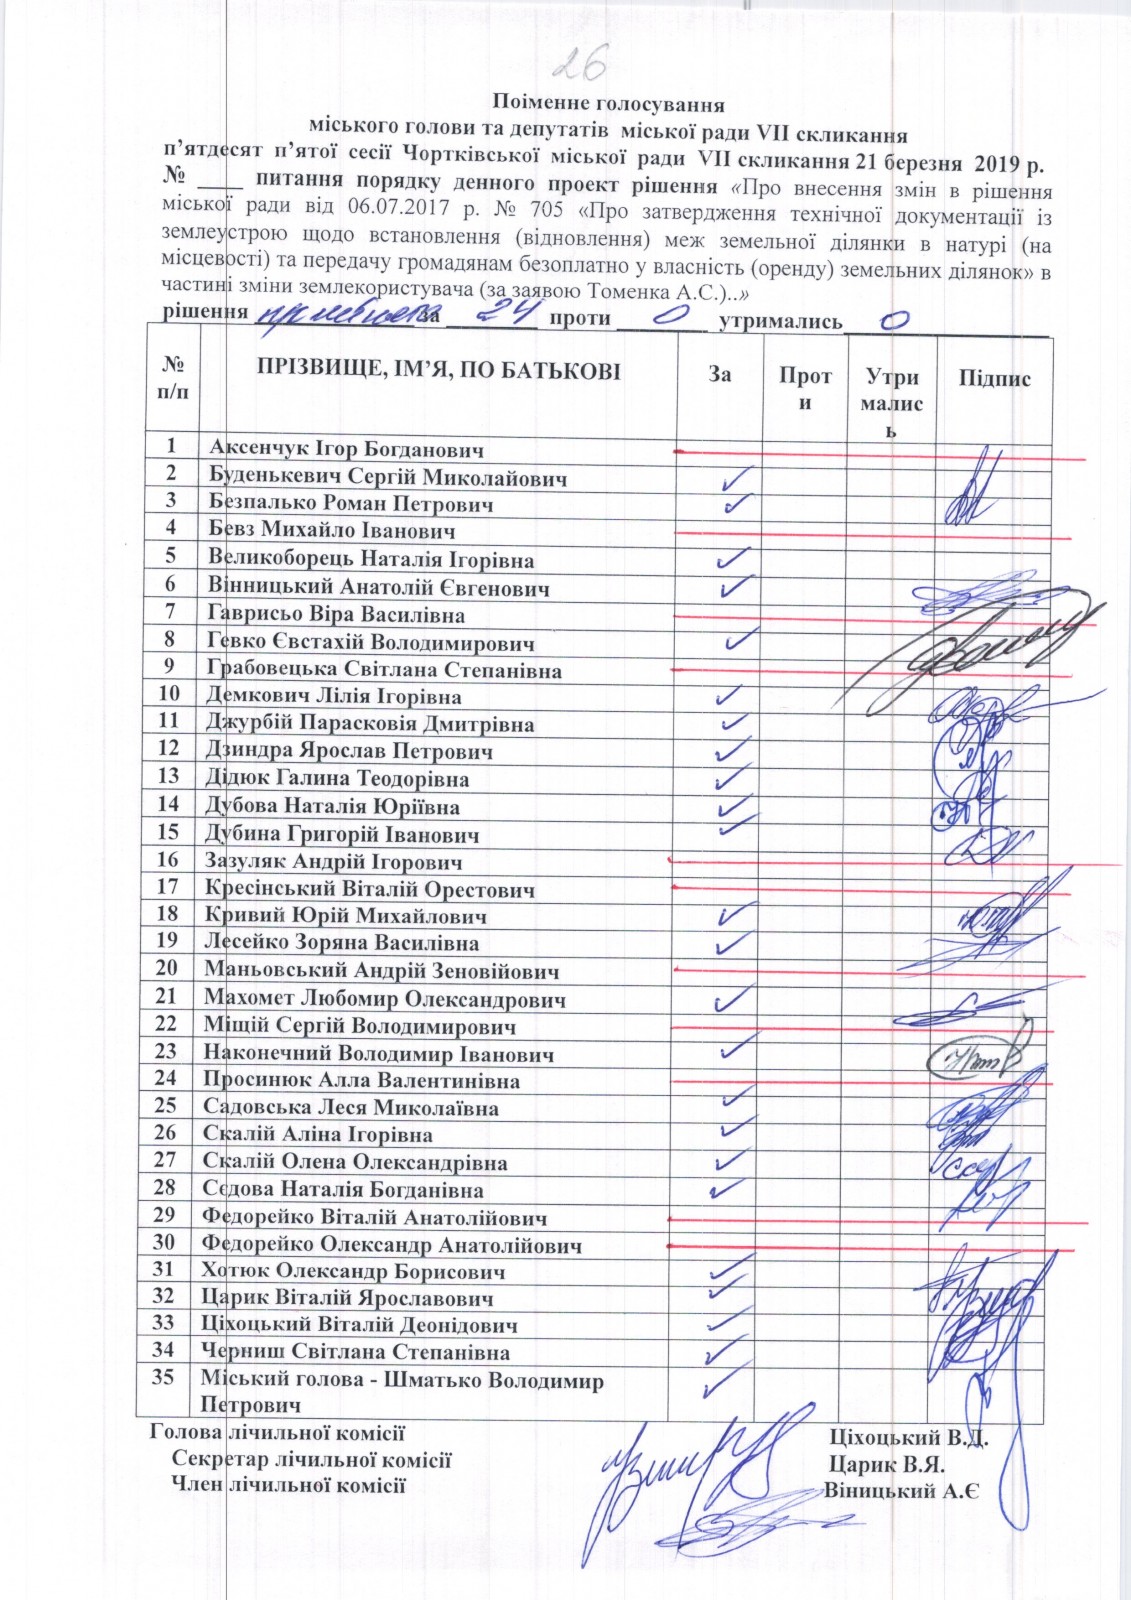 26
Поіменне голосування
міського голови та депутатів міської ради VII скликання
п’ятдесят п’ятої сесії Чортківської міської ради VII скликання 21 березня 2019 р.
№ ____ питання порядку денного проект рішення «Про внесення змін в рішення
міської ради від 06.07.2017 р. № 705 «Про затвердження технічної документації із
землеустрою щодо встановлення (відновлення) меж земельної ділянки в натурі (на
місцевості) та передачу громадянам безоплатно у власність (оренду) земельних ділянок» в
частині зміни землекористувача (за заявою Томенка А.С.)..»
рішення за 24 проти 0 утримались 0
№ п/п ПРІЗВИЩЕ, ІМ’Я, ПО БАТЬКОВІ За Проти Утрималисьь Підпис
1 Аксенчук Ігор Богданович
2 Буденькевич Сергій Миколайович ✓
3 Безпалько Роман Петрович ✓
4 Бевз Михайло Іванович
5 Великоборець Наталія Ігорівна ✓
6 Вінницький Анатолій Євгенович ✓
7 Гаврисьо Віра Василівна
8 Гевко Євстахій Володимирович ✓
9 Грабовецька Світлана Степанівна
10 Демкович Лілія Ігорівна ✓
11 Джурбій Парасковія Дмитрівна ✓
12 Дзиндра Ярослав Петрович ✓
13 Дідюк Галина Теодорівна ✓
14 Дубова Наталія Юріївна ✓
15 Дубина Григорій Іванович ✓
16 Зазуляк Андрій Ігорович
17 Кресінський Віталій Орестович
18 Кривий Юрій Михайлович ✓
19 Лесейко Зоряна Василівна ✓
20 Маньовський Андрій Зеновійович
21 Махомет Любомир Олександрович ✓
22 Міщій Сергій Володимирович
23 Наконечний Володимир Іванович ✓
24 Просинюк Алла Валентинівна
25 Садовська Леся Миколаївна ✓
26 Скалій Аліна Ігорівна ✓
27 Скалій Олена Олександрівна ✓
28 Сєдова Наталія Богданівна ✓
29 Федорейко Віталій Анатолійович
30 Федорейко Олександр Анатолійович
31 Хотюк Олександр Борисович ✓
32 Царик Віталій Ярославович ✓
33 Ціхоцький Віталій Деонідович ✓
34 Черниш Світлана Степанівна ✓
35 Міський голова - Шматько Володимир ✓
Петрович
Голова лічильної комісії Ціхоцький В.Д.
Секретар лічильної комісії Царик В.Я.
Член лічильної комісії Віницький А.Є